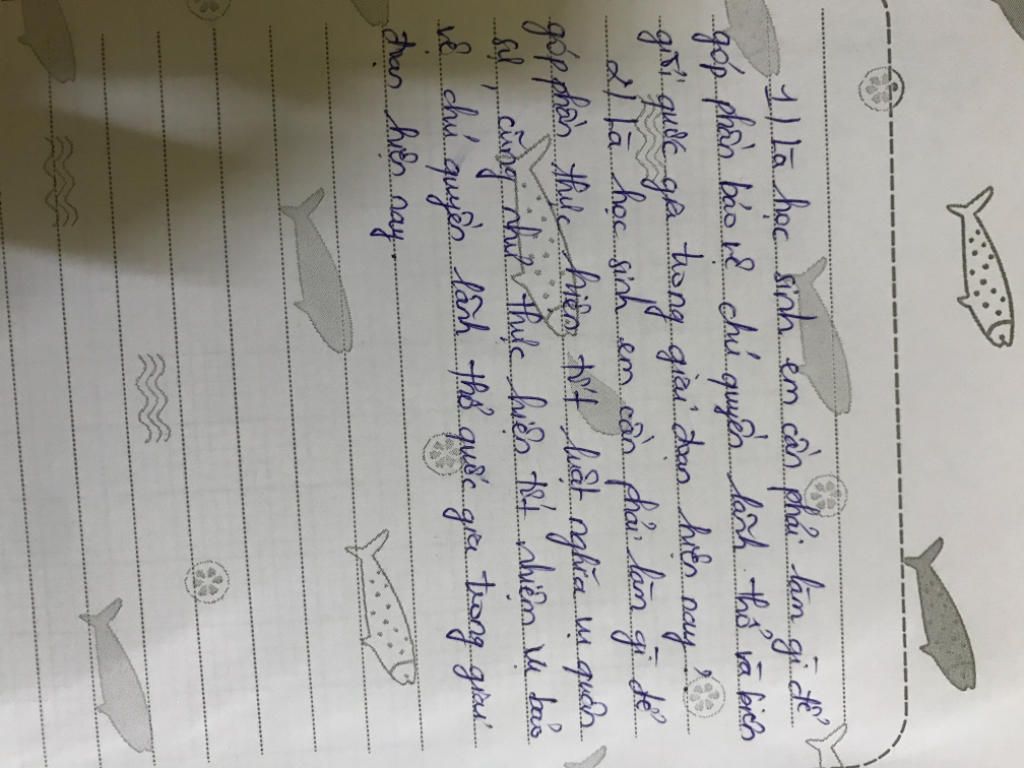 1) Là học sinh em cần phải làm gì để
góp phần bảo vệ chủ quyền lãnh thổ và biên
giới quốc gia trong giai đoạn hiện nay?
2) Là học sinh em cần phải làm gì để
góp phần thực hiện tốt luật nghĩa vụ quân
sự, cũng như thực hiện tốt nhiệm vụ bảo
vệ chủ quyền lãnh thổ quốc gia trong giai
đoạn hiện nay.